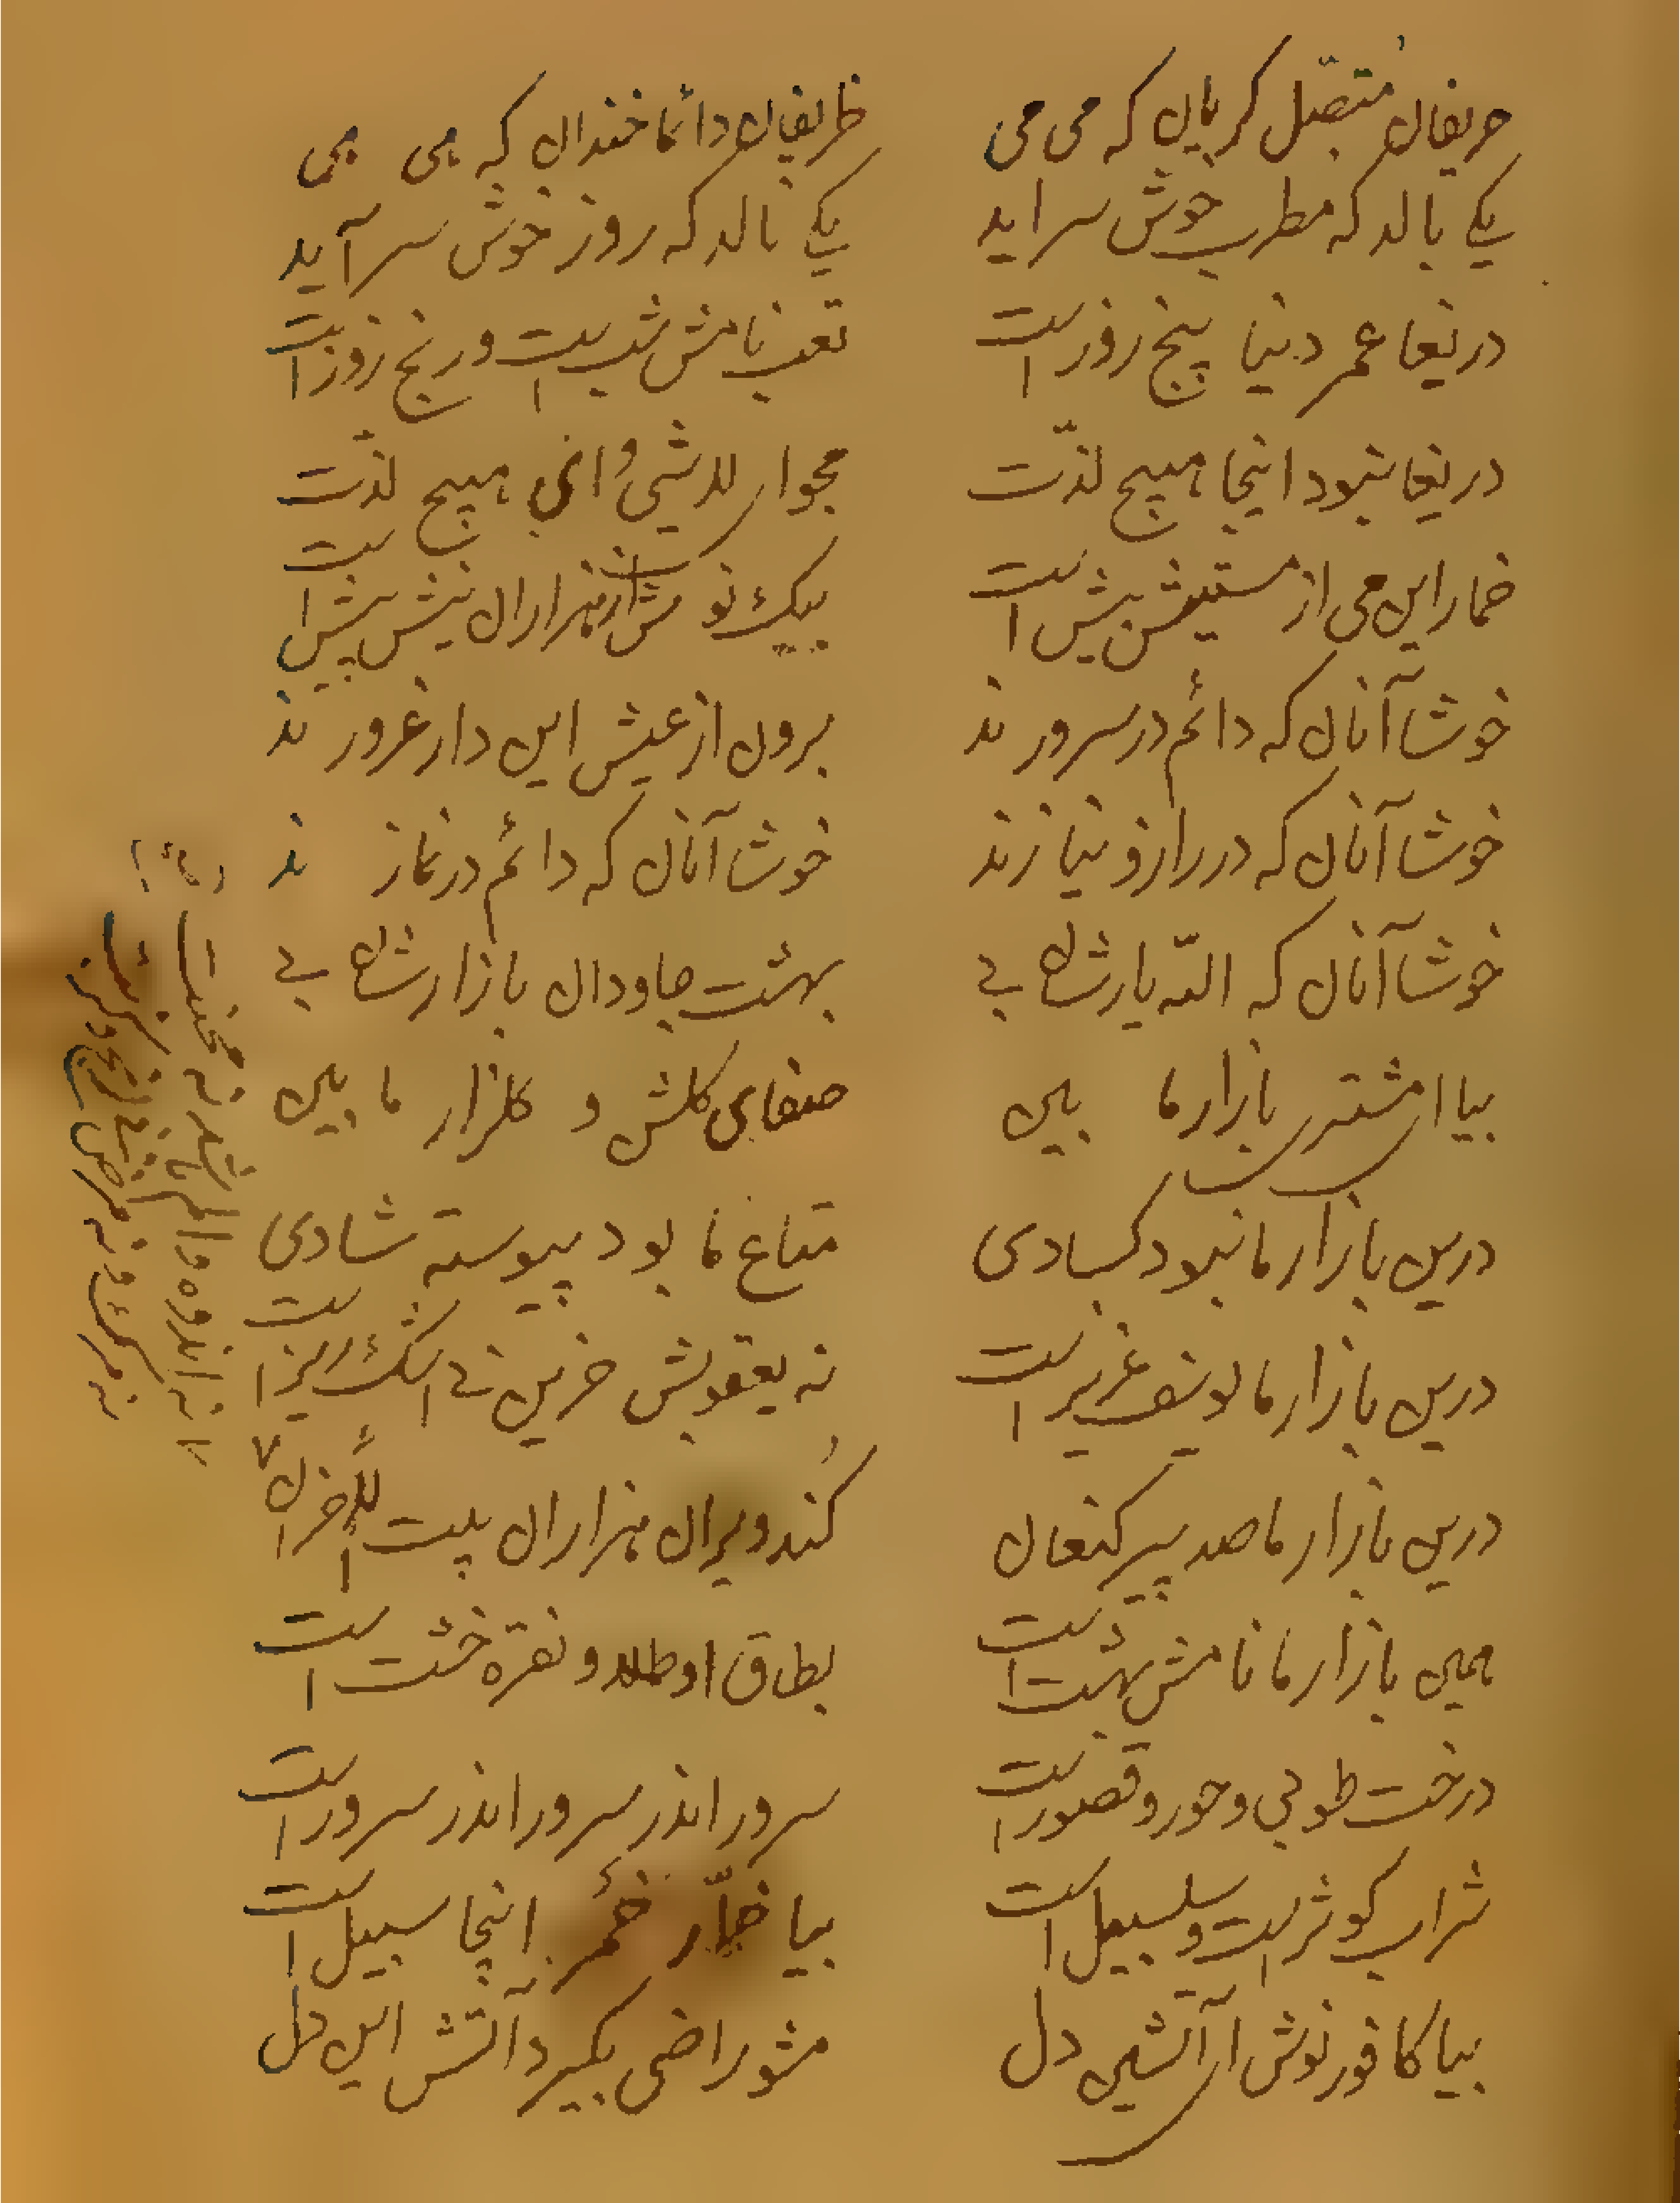 حریفان متصل گریان که می می
ظریفان دائما خندان که هی هی
یکے بالد که مطرب خوش سراید
یکے نالد که روز خوش سرآید
دریغا عمر دنیا پنج روز است
تعب نامش شب است و رنج روز است
دریغا نبود اینجا هیچ لذّت
مجو از لاشی و انی هیچ لذّت
خمار این می از مستیش بیش است
بیک نوشش هزاران نیش پیش است
خوشا آنان که دائم در سرورند
برون از عیش این دار غرورند
خوشا آنان که در راز و نیازند
خوشا آنان که دائم در نمازند
خوشا آنان که اللّه یارشان بے
بهشت جاودان بازارشان بے
بیا ای مشتری بازار ما بین
صفای گلشن و گلزار ما بین
درین بازار ما نبود کسادی
متاع ما بود پیوسته شادی
درین بازار ما یوسف عزیز است
نه یعقوبش حزین نے اشک ریز است
درین بازار ما صد پیر کنعان
کند ویران هزاران بیت احزان
همین بازار ما نامش بهشت است
بطاق او طلا و نقره خشت است
درخت طوبی و حور و قصور است
سرور اندر سرور اندر سرور است
شراب کوثر است و سلسبیل است
بیا خمّار خمر اینجا سبیل است
بیا کافور نوش ای آتشین دل
مشو راضی بگیرد آتش این دل